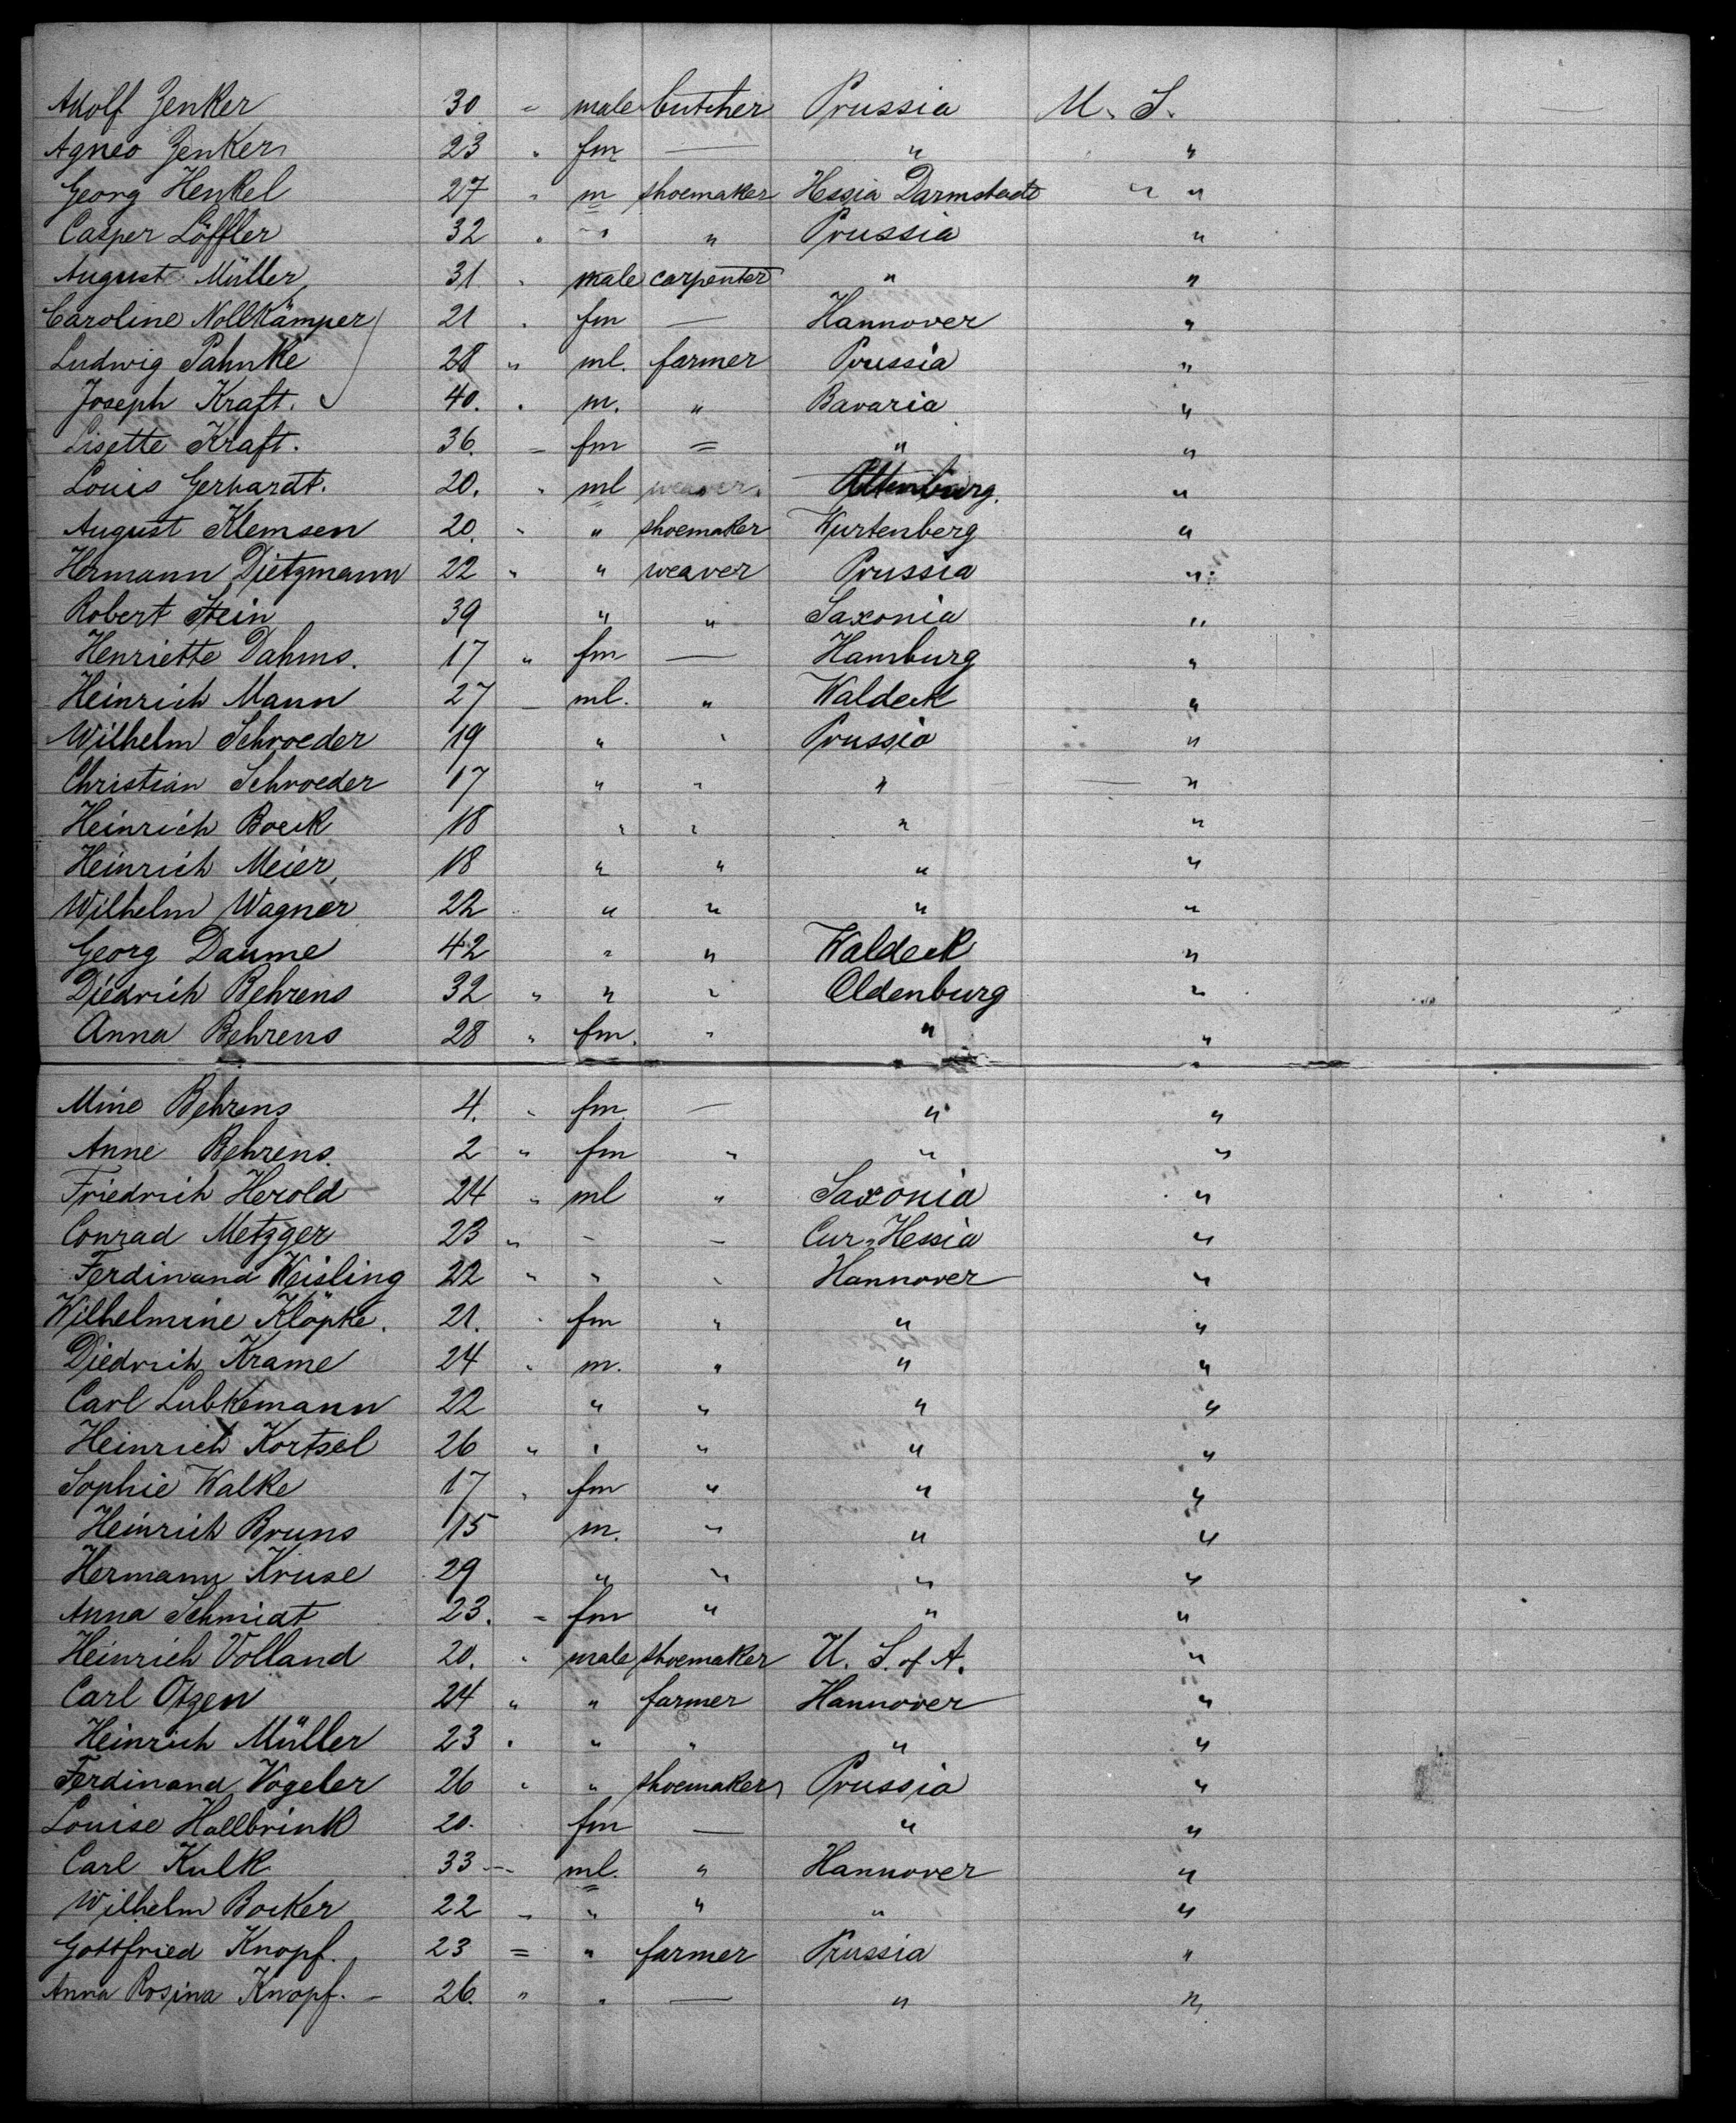 Adolf Zenker 30 " male butcher Prussia U. S.
Agnes Zenker 23 " fm — " "
Georg Henkel 27 " m shoemaker Hessia Darmstadt " "
Casper Löffler 32 " " " Prussia "
August Müller, 31 " male carpenter " "
Caroline Nollkämper 21 " fm — Hannover "
Ludwig Pahnke 28 " ml. farmer Prussia "
Joseph Kraft. 40. " m. " Bavaria "
Lisette Kraft. 36. " fm = " "
Louis Gerhardt. 20. " ml weaver. Altenburg. "
August Klemsen 20. " " shoemaker Wurtenberg "
Hermann Dietzmann 22 " " weaver Prussia "
Robert Stein 39 " " Saxonia "
Henriette Dahms. 17 " fm — Hamburg "
Heinrich Mann 27 — ml. " Waldeck "
Wilhelm Schroeder 19 " " Prussia "
Christian Schroeder 17 " " " — "
Heinrich Boeck 18 " " " "
Heinrich Meier, 18 " " " "
Wilhelm Wagner 22 " " " "
Georg Daume 42 " " Waldeck "
Diedrich Behrens 32 " " " Oldenburg "
Anna Behrens 28 " fm. " " "
Mine Behrens 4. " fm. — " "
Anne Behrens. 2 " fm " " "
Friedrich Herold 24 " ml " Saxonia "
Conrad Metzger 23 " " " Cur-Hessia "
Ferdinand Weisling 22 " " " Hannover "
Wilhelmine Klöpke. 21. " fm " " "
Diedrich Krame 24 " m. " " "
Carl Lubkemann 22 " " " "
Heinrich Kortsel 26 " " " " "
Sophie Walke 17 " fm " " "
Heinrich Bruns 15 m. " " "
Hermann Kruse 29 " " " "
Anna Schmidt 23. " fm " " "
Heinrich Volland 20. " male shoemaker U. S. of A. "
Carl Otzen 24 " " farmer Hannover "
Heinrich Müller 23 " " " " "
Ferdinand Vogeler 26 " " shoemaker Prussia "
Louise Hallbrink 20. fm — " "
Carl Kulk 33 — ml. " Hannover "
Wilhelm Bocker 22 " " " " "
Gottfried Knopf. 23 = " farmer Prussia "
Anna Rosina Knopf. – 26. " " — " "